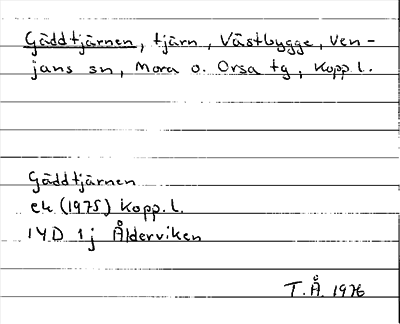 Gäddtjärnen, tjärn, Västbygge, Ven-
jans sn, Mora o. Orsa tg, Kopp.l.
Gäddtjärnen
ek (1975) Kopp.l.
14D 1j Ålderviken
T.Å. 1976